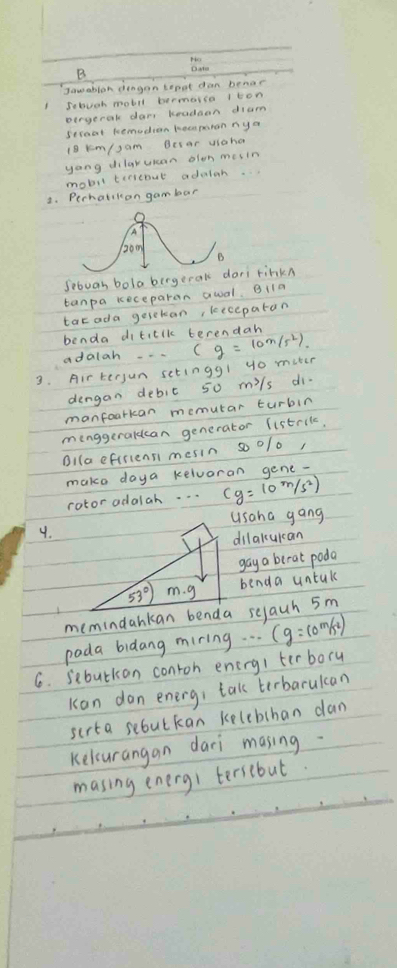 No
Date
B
Jawablah dengan tepat dan benar
1 Sebuah mobil bermassa 1 ton
bergerak dari keadaan diam
sesaat kemudian kecepatannya
18 km/jam Besar usaha
yang dilakukan oleh mesin
mobil tersebut adalah ...
2. Perhatikan gambar
A
20m
B
Sebuah bola bergerak dari titik A
tanpa keceparan awal. Bila
tak ada gesekan, kecepatan
benda dititik terendah
adalah --- (g = 10m/s²).
3. Air terjun setinggi 40 meter
dengan debit 50 m³/s di-
manfaatkan memutar turbin
menggerakkan generator listrik.
Bila efisiensi mesin 80%,
maka daya keluaran gene-
rator adalah ... (g = 10 m/s²)
4.
53°
m.g
usaha yang
dilakukan
gaya berat pada
benda untuk
memindahkan benda sejauh 5m
pada bidang miring ... (g=10m/s²)
6. Sebutkan contoh energi terbaru
kan dan energi tak terbarukan
serta sebutkan kelebihan dan
kekurangan dari masing -
masing energi tersebut.